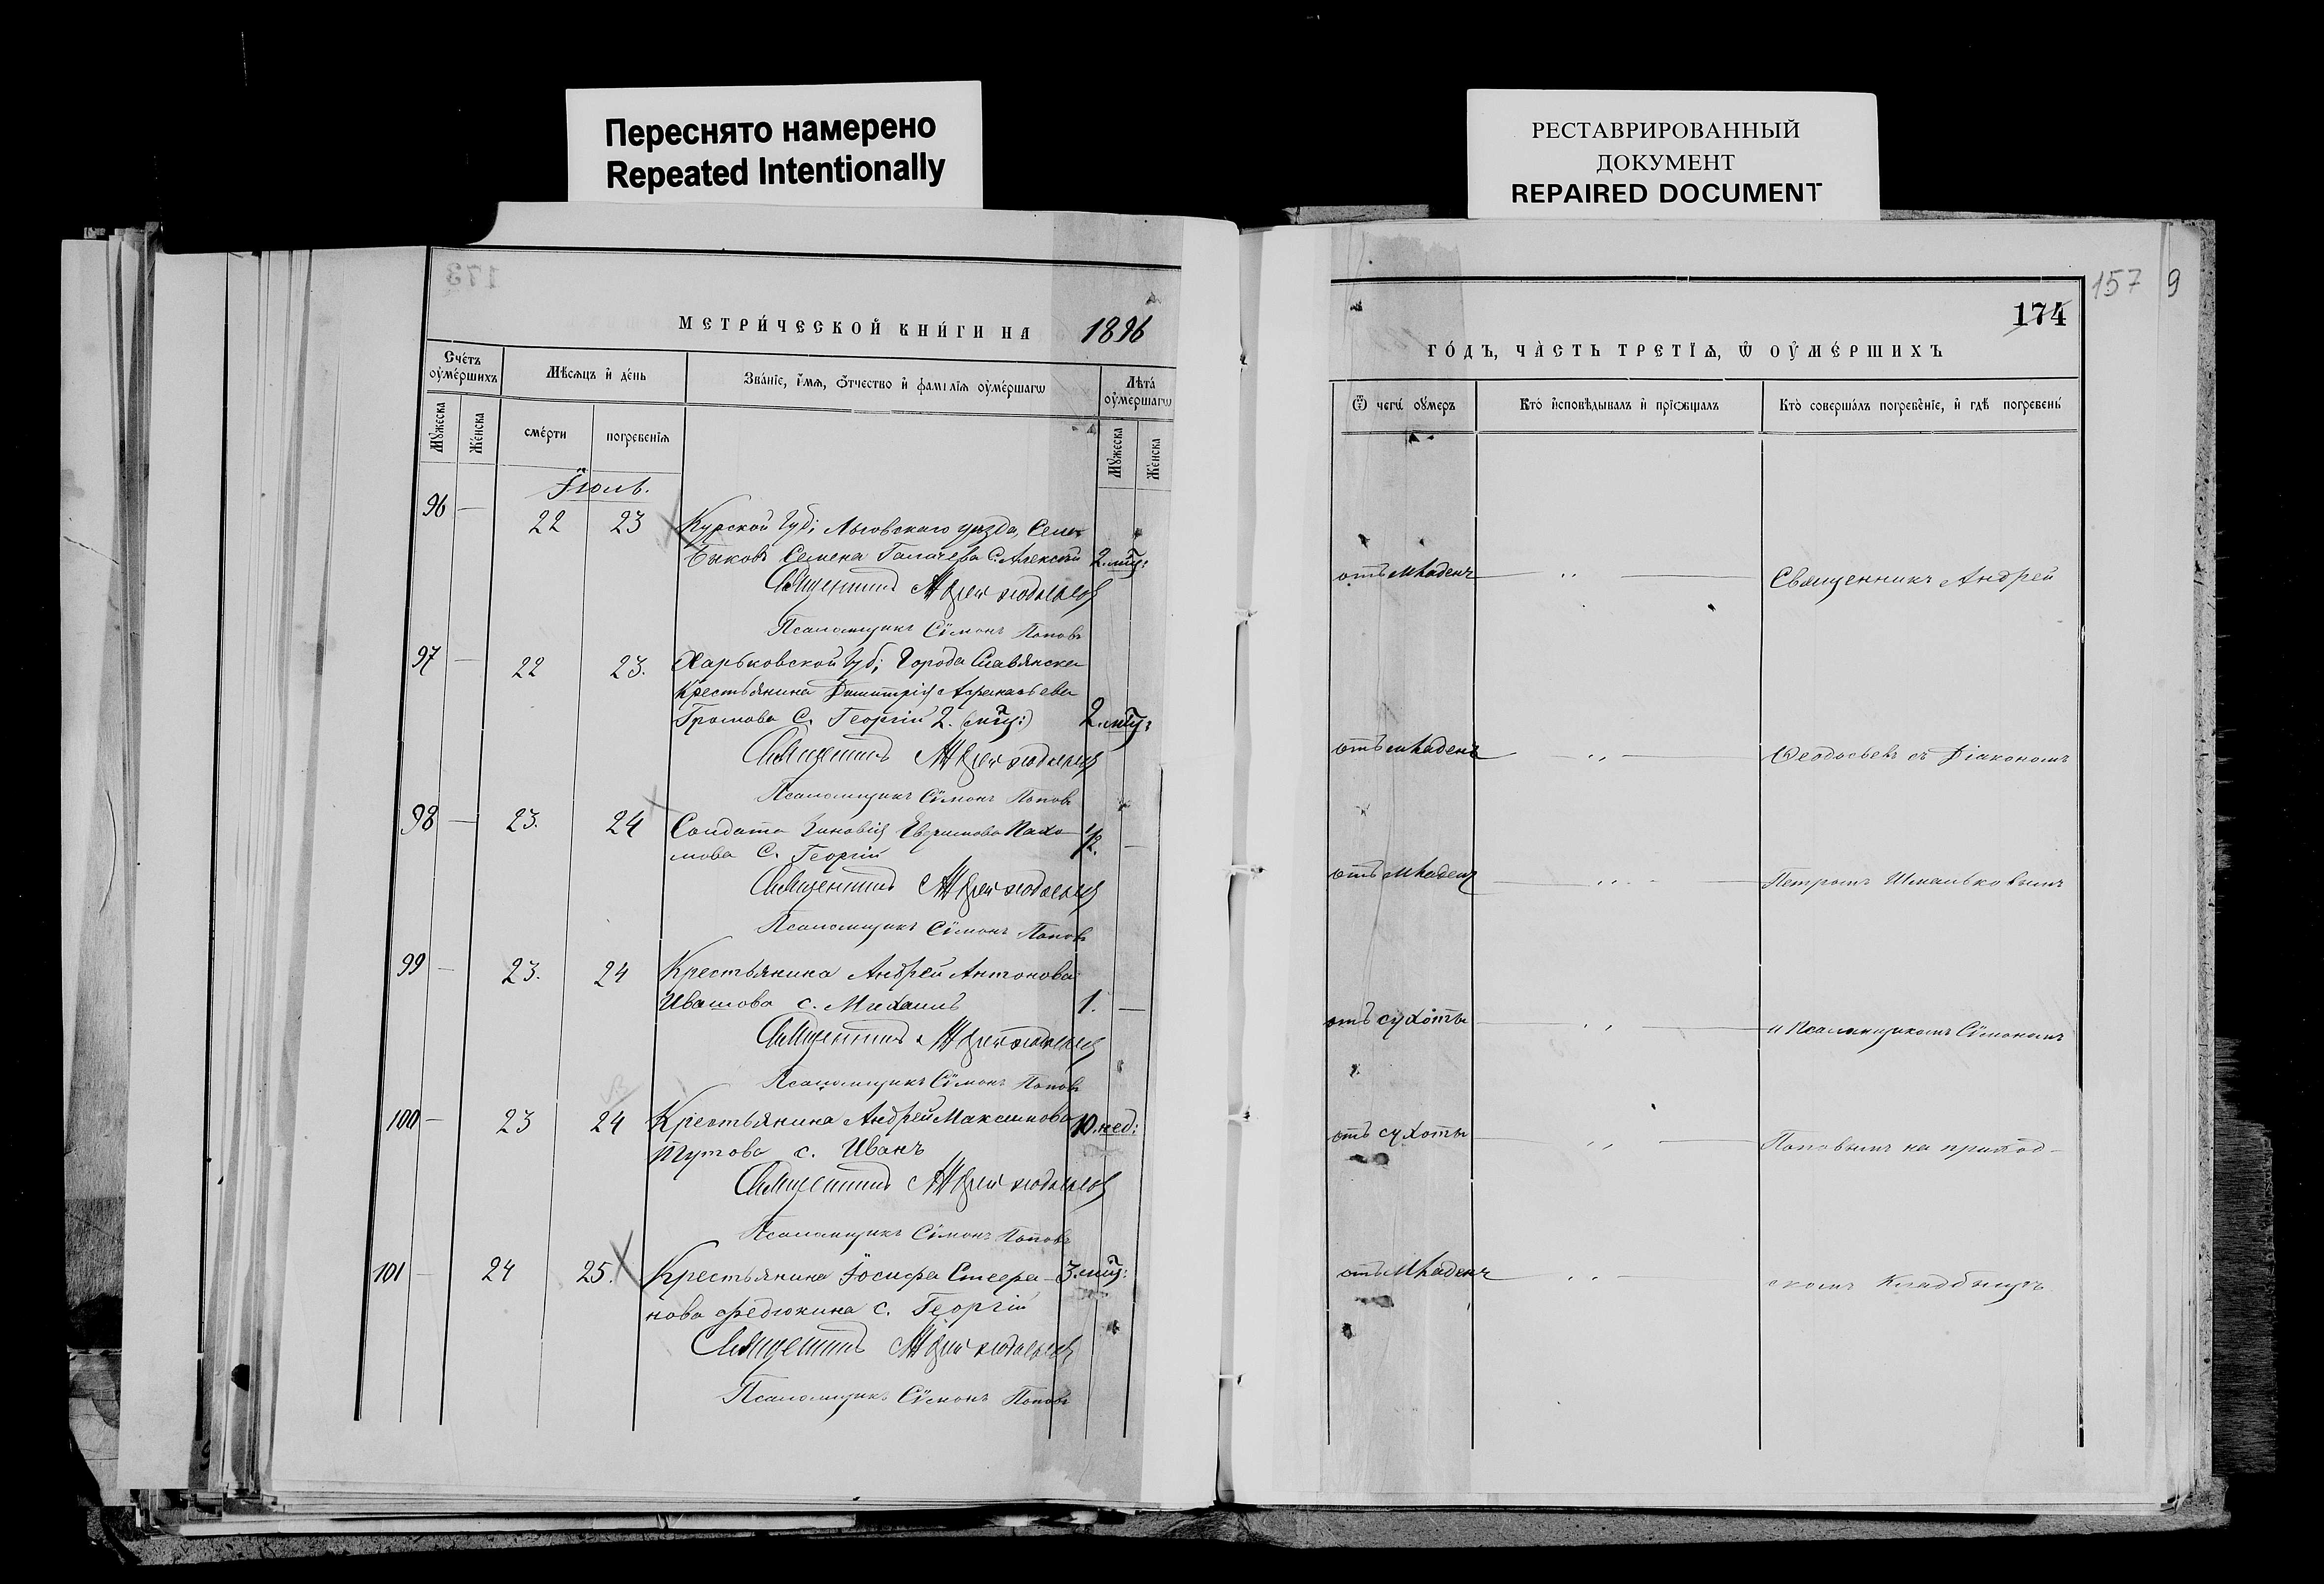 Переснято намерено
Repeated Intentionally
РЕСТАВРИРОВАННЫЙ
ДОКУМЕНТ
REPAIRED DOCUMENT
173
МЕТРИ́ЧЕСКОЙ КНИ́ГИ НА 1896
Сче́тъ оумéршихъ
Мѣ́сѧцъ и҆ де́нь
Зва́нїе, и҆́мѧ, ѻ҆́тчество и҆ фамі́лїѧ оу҆ме́ршагѡ
Лѣта̀ оу҆ме́ршагѡ
Мꙋ́жеска
Же́нска
сме́рти
погребе́нїѧ
Мꙋ́жеска
Же́нска
Іюль.
96 — 22 23 Курской Губ; Льговскаго уѣзда, Села
Быковъ Семена Галичева С. Алексѣй 2. мц:
Священникъ Андрей Ѳеодосьевъ
Псаломщикъ Сѵмонъ Поповъ
97 — 22 23. Харьковской Губ; Города Славянска
Крестьянина Димитрія Аѳанасьева
Громова С. Георгій 2. (мц:) 2. мц:
Священникъ Андрей Ѳеодосьевъ
Псаломщикъ Сѵмонъ Поповъ
98 — 23. 24 Солдата Зиновія Евѳимова Пахо-
мова С. Георгій 1/2. —
Священникъ Андрей Ѳеодосьевъ
Псаломщикъ Сѵмонъ Поповъ
99 — 23. 24 Крестьянина Андрей Антонова
Ивашова с. Михаилъ 1. —
Священникъ Андрей Ѳеодосьевъ
Псаломщикъ Сѵмонъ Поповъ
100 — 23 24 Крестьянина Андрей Максимова 10. нед:
Тутова с. Иванъ
Священникъ Андрей Ѳеодосьевъ
Псаломщикъ Сѵмонъ Поповъ
101 — 24 25. Крестьянина Іосифа Стефа- 3. мц:
нова Федюкина с. Георгій
Священникъ Андрей Ѳеодосьевъ
Псаломщикъ Сѵмонъ Поповъ
157 9
174
ГО́ДЪ, ЧА́СТЬ ТРЕ́ТЇѦ, Ѡ҆ ОУ҆МЕ́РШИХЪ
Ѿ чегѡ̀ оу҆́меръ
Кто̀ и҆сповѣ́дывалъ и҆ прїѡбща́лъ
Кто̀ соверша́лъ погребе́нїе, и҆ гдѣ̀ погребены̀
отъ младенч — ,, — Священникъ Андрей
отъ младенч — ,, — Ѳеодосьевъ съ Діакономъ
отъ младенч — ,, — Петромъ Шмальковымъ
отъ сухоты — ,, — и Псаломщикомъ Сѵмономъ
отъ сухоты — ,, — Поповымъ на приход-
отъ младенч — ,, — скомъ кладбищѣ.